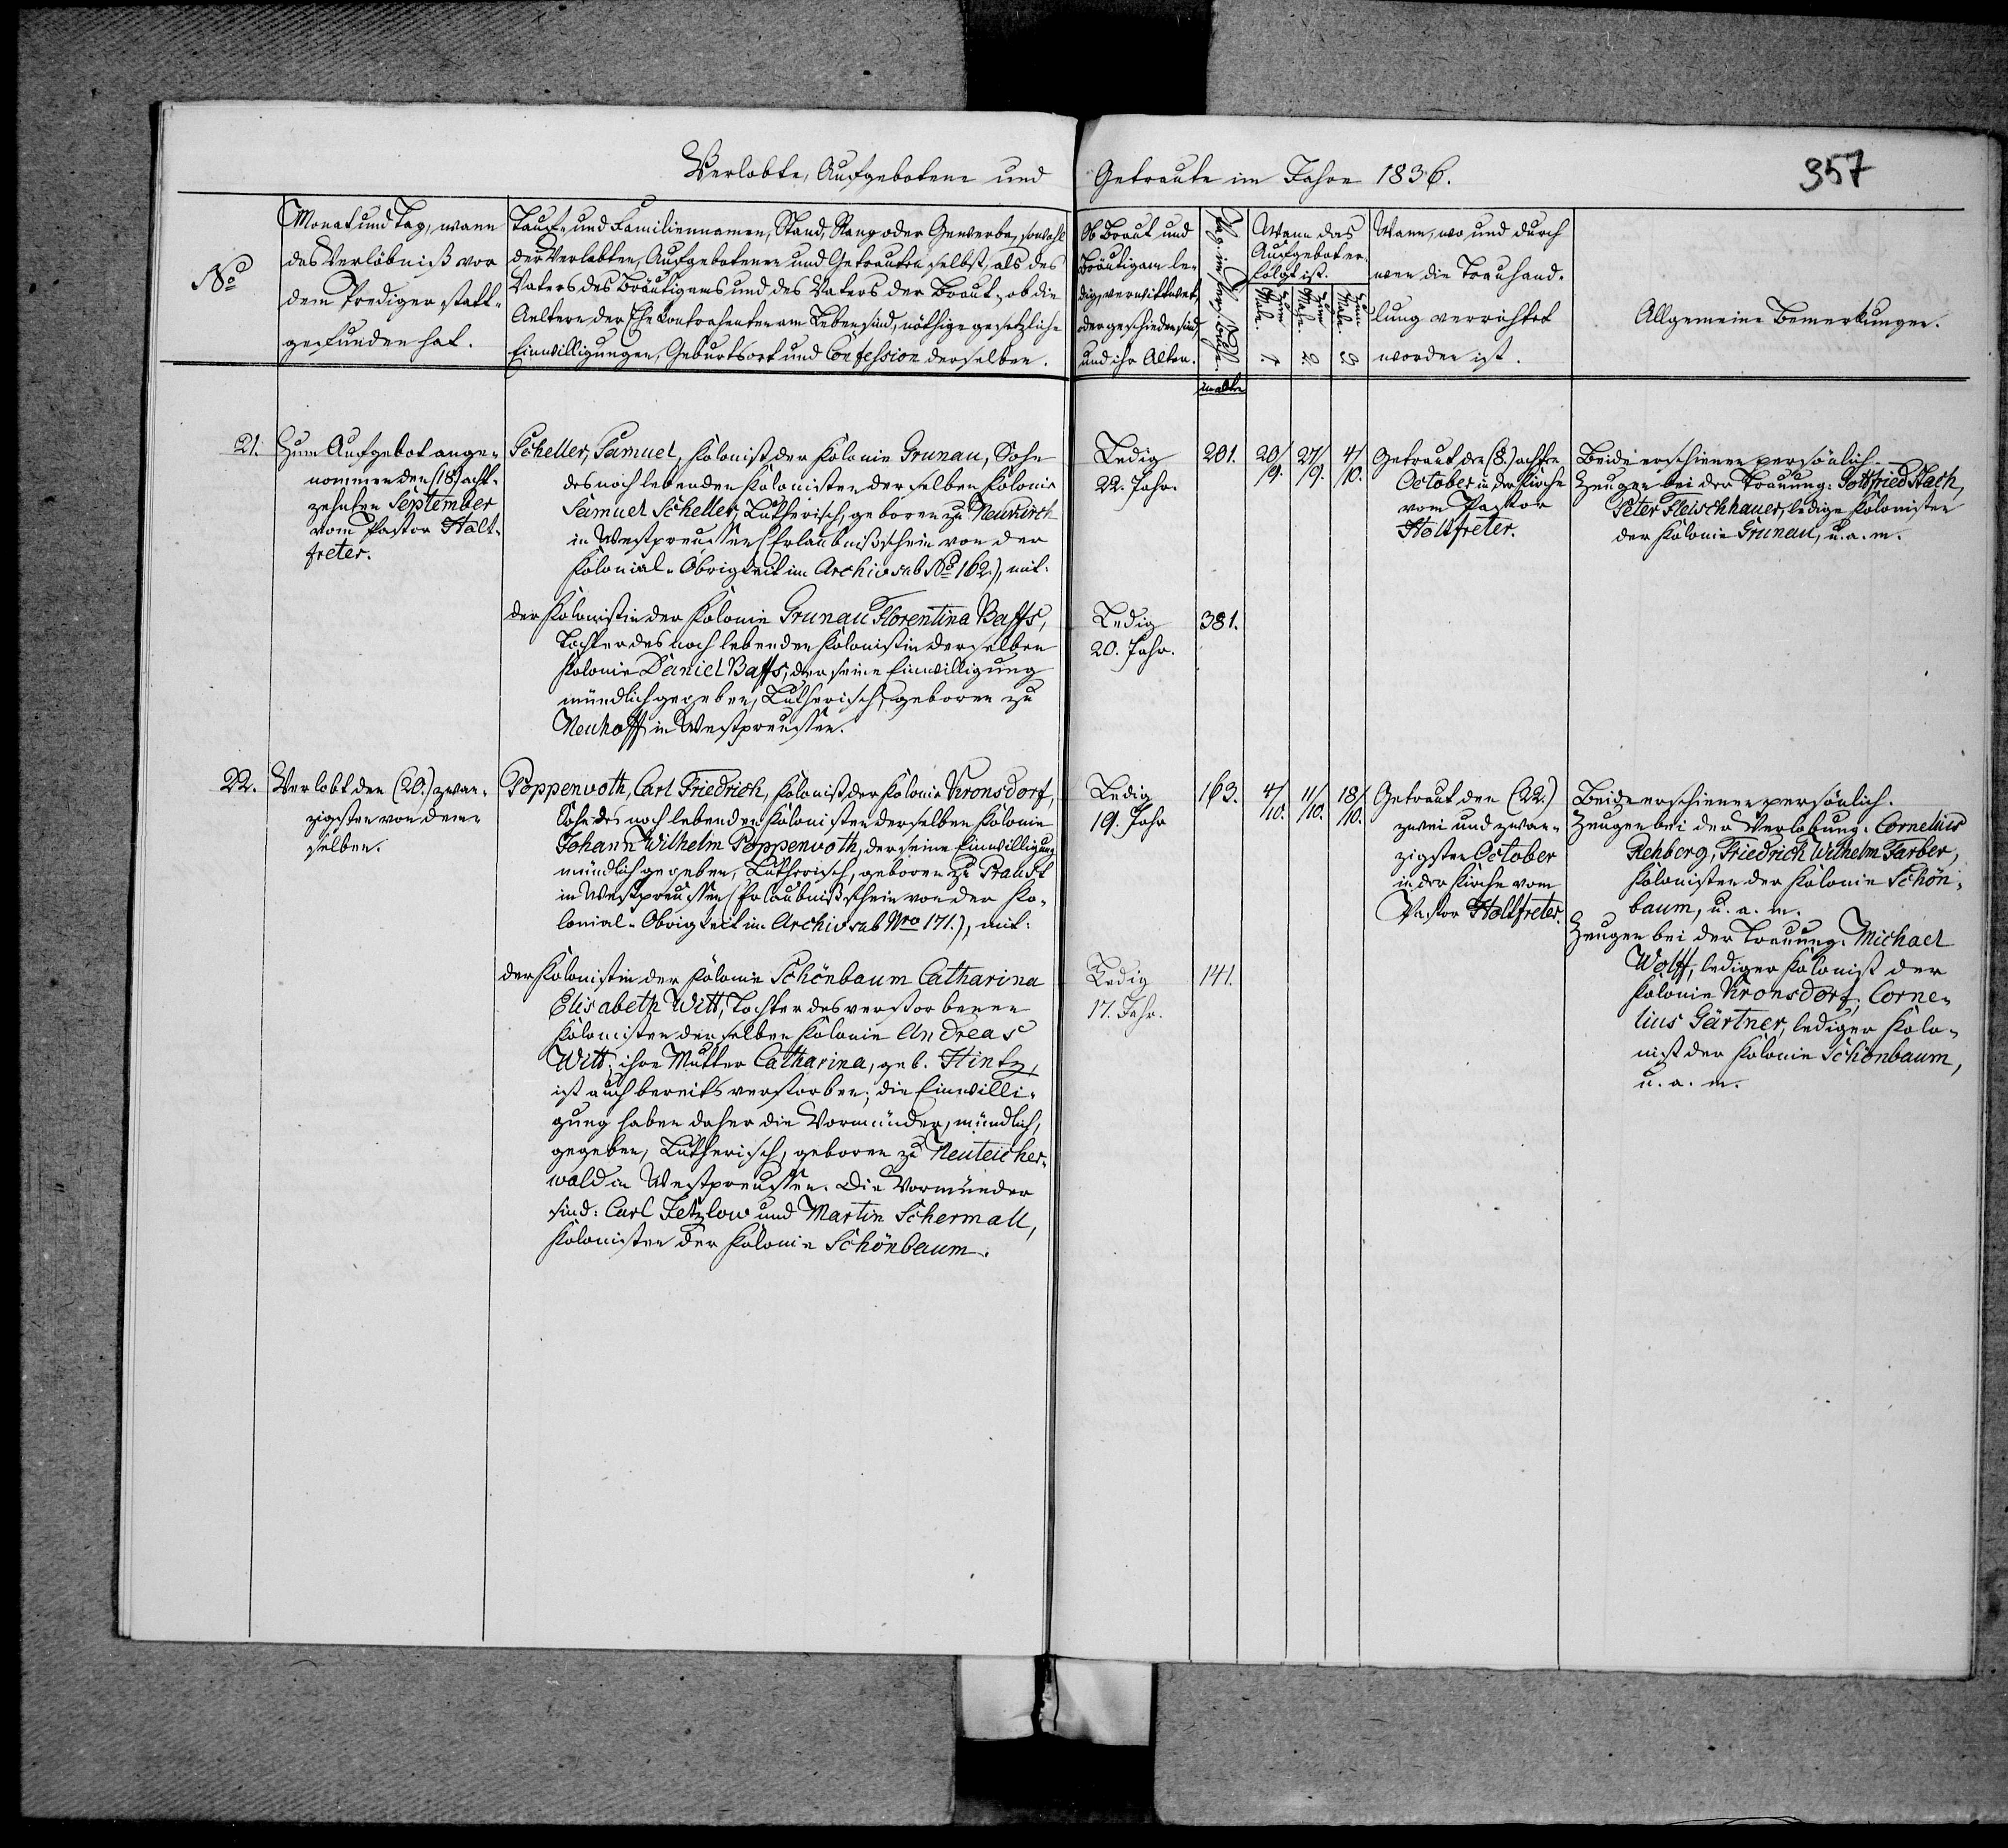 Verlobte, Aufgebotene und Getraute im Jahre 1836.
357
No
Monat und Tag, wann
das Verlöbniß vor
dem Prediger statt-
gefunden hat.
Tauf- und Familiennamen, Stand, Rang oder Gewerbe, sowohl
der Verlobten, Aufgebotenen und Getrauten selbst, als des
Vaters des Bräutigams und des Vaters der Braut, ob die
Aeltern der Ehe Contrahenten am Leben sind, nöthige gesetzliche
Einwilligungen, Geburtsort und Confession derselben.
Ob Braut und
Bräutigam le-
dig, verwittwet,
oder geschieden sind,
und ihr Alter.
Wann das
Aufgebot er-
folgt ist.
Zum 1. Male.
Zum 2. Male.
Zum 3. Male.
Wann, wo und durch
wen die Trauhand-
lung verrichtet
worden ist.
Allgemeine Bemerkungen.
21.
Zum Aufgebot ange-
nommen den (18.) acht-
zehnten September
vom Pastor Holt-
freter.
Scheller, Samuel, Kolonist der Kolonie Grunau, Sohn
des noch lebenden Kolonisten derselben Kolonie
Samuel Scheller, Lutherisch, geboren zu Neukirch
in Westpreussen (Erlaubnißschein von der
Kolonial-Obrigkeit im Archiv sub No 162.), mit:
der Kolonistin der Kolonie Grunau Florentina Baffs,
Tochter des noch lebenden Kolonisten derselben
Kolonie Daniel Baffs, der seine Einwilligung
mündlich gegeben, Lutherisch, geboren zu
Neuhoff in Westpreussen.
Ledig
22. Jahr.
201.
20/9.
27/9.
4/10.
Ledig
20. Jahr.
381.
Getraut den (8.) achten
October in der Kirche
vom Pastor
Holtfreter.
Beide erschienen persönlich.
Zeugen bei der Trauung: Gottfried Stach,
Peter Fleischhauer, ledige Kolonisten
der Kolonie Grunau, u. a. m.
22.
Verlobt den (20.) zwan-
zigsten von dem-
selben.
Poppenvoth, Carl Friedrich, Kolonist der Kolonie Kronsdorf,
Sohn des noch lebenden Kolonisten derselben Kolonie
Johann Wilhelm Poppenvoth, der seine Einwilligung
mündlich gegeben, Lutherisch, geboren zu Praust
in Westpreussen (Erlaubnißschein von der Ko-
lonial-Obrigkeit im Archiv sub Nro 171.), mit:
der Kolonistin der Kolonie Schönbaum Catharina
Elisabeth Witt, Tochter des verstorbenen
Kolonisten derselben Kolonie Andreas
Witt; ihre Mutter Catharina, geb. Hintz,
ist auch bereits verstorben; die Einwilli-
gung haben daher die Vormünder, mündlich,
gegeben, Lutherisch, geboren zu Neuteicher-
wald in Westpreussen. Die Vormünder
sind: Carl Jetzlow und Martin Schermall,
Kolonisten der Kolonie Schönbaum.
Ledig
19. Jahr
163.
4/10.
11/10.
18/10.
Ledig
17. Jahr.
141.
Getraut den (22.)
zwei und zwan-
zigsten October
in der Kirche vom
Pastor Holtfreter.
Beide erschienen persönlich.
Zeugen bei der Verlobung: Cornelius
Rehberg, Friedrich Wilhelm Farber,
Kolonisten der Kolonie Schön-
baum, u. a. m.
Zeugen bei der Trauung: Michael
Wolff, lediger Kolonist der
Kolonie Kronsdorf, Corne-
lius Gärtner, lediger Kolo-
nist der Kolonie Schönbaum,
u. a. m.